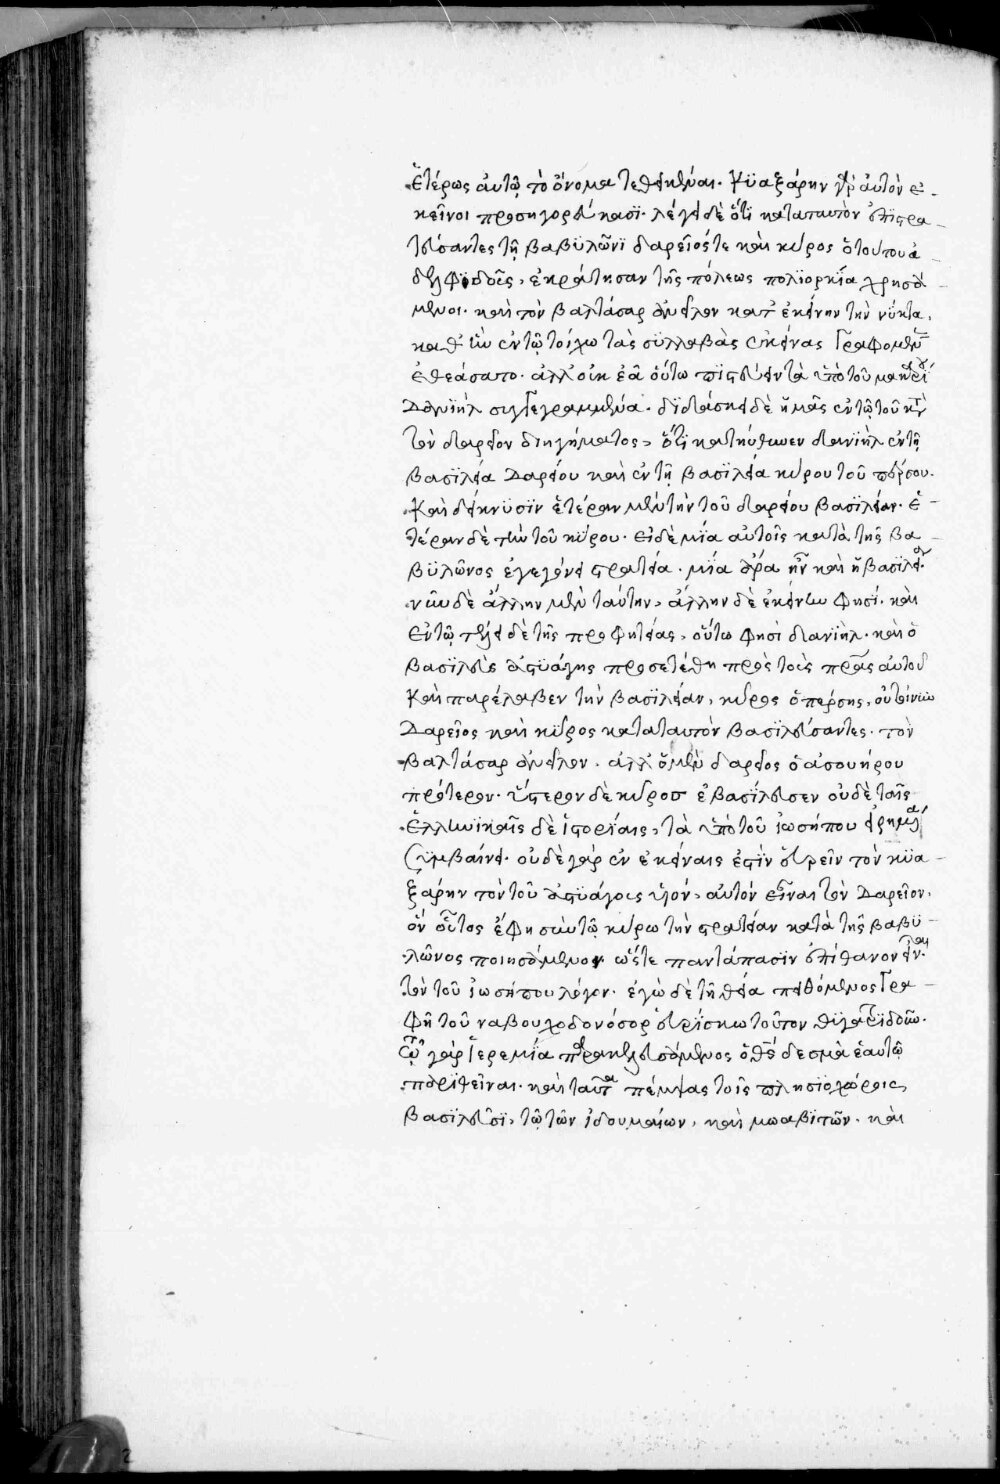 ἑτέρως αὐτῶ τὸ ὄνομα τεθεικέναι. κϋαξάρην γὰρ αὐτὸν ἐ-
κεῖνοι προσηγορεύκασι. λέγει δὲ ὅτι καταταυτὸν ἐπιστρα-
τεύσαντες τῆ βαβϋλῶνϊ δαρεῖός τε καὶ κύρος ὁ τούτου ἀ-
δελφϊδοῦς, ἐκράτησαν τῆς πόλεως πολϊορκία χρησά-
μενοι. καὶ τὸν βαλτάσαρ ἀνεῖλον κατ' ἐκείνην τὴν νύκτα,
καθ' ἣν ἐν τῶ τοίχω τὰς συλλαβὰς ἐκείνας γραφομένας
ἐθεάσατο. ἀλλ' οὐκ ἐᾶ οὕτω πϊστεύειν τὰ ὑπὸ τοῦ μακαρίου
Δανϊὴλ συγγεγραμμένα. δϊδάσκει δὲ ἡμᾶς ἐν τῶ τοῦ κατὰ
τὸν δαρεῖον διηγήματος, ὅτι κατηύθυνεν δανϊὴλ ἐν τῆ
βασϊλεία Δαρείου καὶ ἐν τῆ βασϊλεία κύρου τοῦ πέρσου.
Καὶ δείκνυσϊν ἑτέραν μὲν τὴν τοῦ δαρείου βασϊλείαν. ἑ-
τέραν δὲ τὴν τοῦ κύρου. εἰ δὲ μϊα αὐτοῖς κατὰ τῆς βα-
βϋλῶνος ἐγεγόνει στρατεία. μία ἄρα ἦν καὶ ἡ βασϊλεία.
νῦν δὲ ἄλλην μὲν ταύτην, ἄλλην δὲ ἐκείνην φησί. καὶ
ἐν τῶ τέλει δὲ τῆς προφητείας, οὕτω φησὶ δανϊὴλ. καὶ ὁ
βασϊλεὺς ἀστϋάγης προσετέθη πρὸς τοὺς πατέρας αὐτοῦ
Καὶ παρέλαβεν τὴν βασϊλείαν, κύρος ὁ πέρσης, οὐ τοίνυν
Δαρεῖος καὶ κῦρος καταταυτὸν βασϊλεύσαντες. τὸν
βαλτάσαρ ἀνεῖλον. ἀλλ' ὁ μὲν δαρεῖος ὁ ἀσουήρου
πρότερον. ὕστερον δὲ κύροσ ἐβασίλευσεν οὐδὲ ταῖς
ἑλληνϊκαῖς δὲ ἱστορίαις, τὰ ὑπὸ τοῦ ἰωσήπου εἰρημένα
Συμβαίνει. οὐδὲ γὰρ ἐν ἐκείναις ἐστὶν εὑρεῖν τὸν κϋα-
ξάρην τὸν τοῦ ἀστϋάγους υἱόν, αὐτὸν εἶναι τὸν Δαρεῖον,
ὃν οὗτος ἔφη σὺν τῶ κύρω τὴν στρατείαν κατὰ τῆς βαβϋ-
λῶνος ποιησάμενον ὥστε παντάπασϊν ἀπίθανον εἶναι
τὸν τοῦ ἰωσήπου λόγον. ἐγὼ δὲ τῆ θεία πειθόμενος γρα-
φῆ τοῦ ναβουχοδονόσορ εὑρίσκω τοῦτον θϋγατριδοῦν.
τῶ γὰρ ἱερεμία παρακελευσάμενος ὁ θεὸς δεσμὰ ἑαυτῶ
περιθεῖναι. καὶ ταῦτα πέμψας τοῖς πλησϊοχώροις
βασϊλεῦσϊ, τῶ τῶν ἰδουμαίων, καὶ μωαβϊτῶν. καὶ